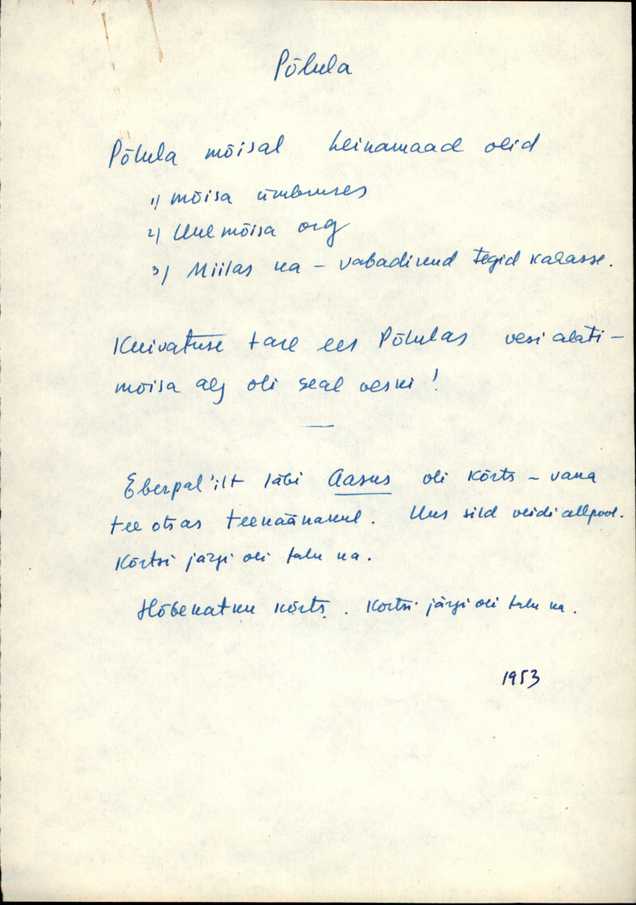 Põlula
Põlula mõisal heinamaad olid
1) mõisa ümbruses
2) Uuemõisa org
3) Miilas ka – vabadikud tegid kalasse.
Kuivatuse tare ees Põlulas vesi alati –
mõisa alg oli seal veski!
Eberpal'ilt läbi Aasus oli kõrts – vana
tee otsas teekäänakul. Uus sild veidi allpool.
Kõrtsi järgi oli talu ka.
Hõbekatku kõrts. Kõrtsi järgi oli talu ka.
1953